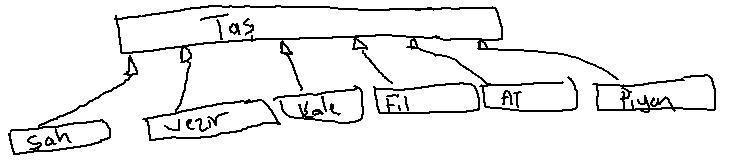 Taş
Şah
Vezir
Kale
Fil
AT
Piyon